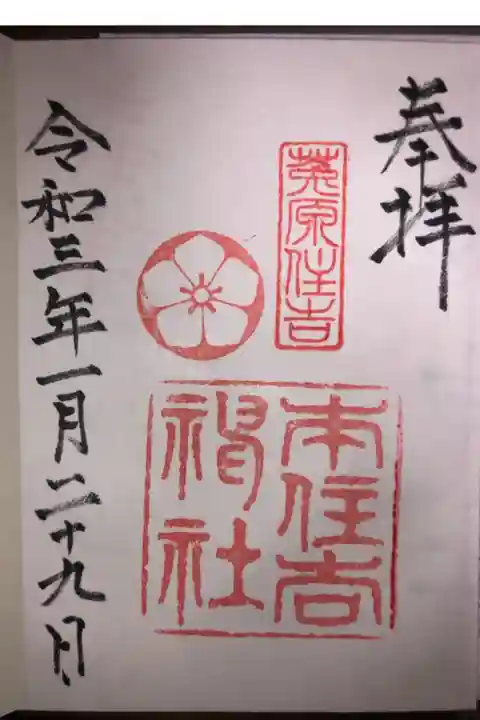 奉拝
莵原住吉
本住吉
神社
令和三年一月二十九日